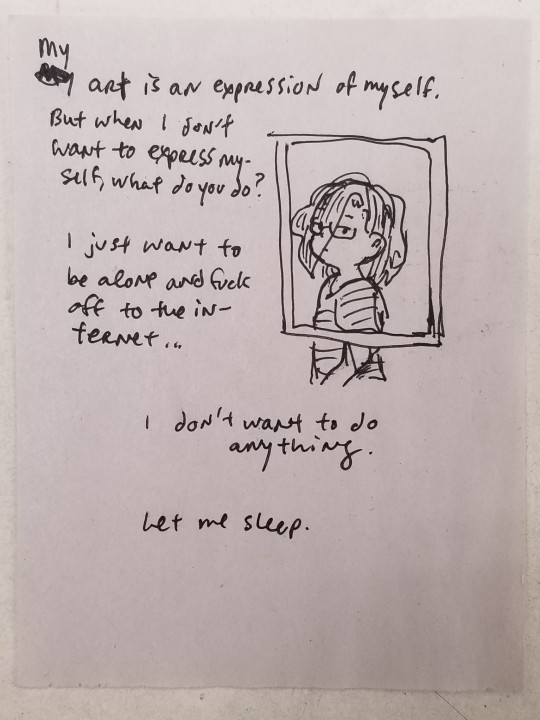 My
art is an expression of myself.
But when I don't
want to express my-
self, what do you do?
I just want to
be alone and fuck
off to the in-
ternet...
I don't want to do
anything.
Let me sleep.